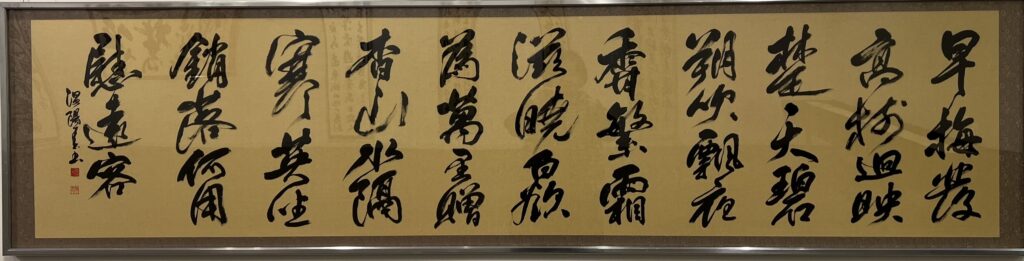 早梅發
高樹迥映
楚天碧
朔吹飄夜
香繁霜
滋曉白欲
為萬里贈
杳山水隔
寒英坐
銷落何用
慰遠客
书